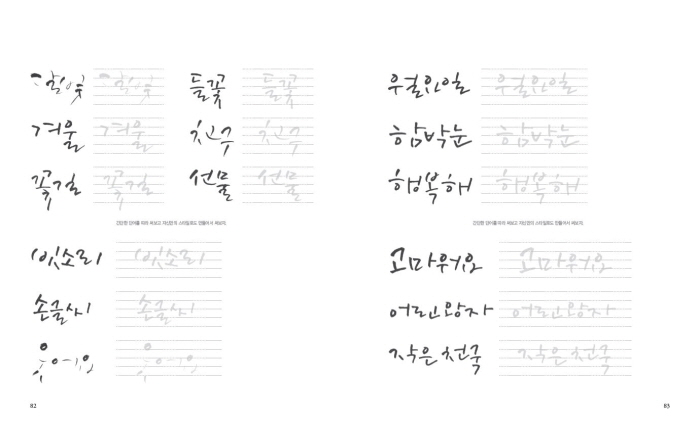 들꽃 들꽃
겨울 겨울 친구 친구
꽃길 꽃길 선물 선물
간단한 단어를 따라 써보고 자신만의 스타일로도 만들어서 써보자.
빗소리 빗소리
손글씨 손글씨
웃어요 웃어요
82
함박눈 함박눈
행복해 행복해
간단한 단어를 따라 써보고 자신만의 스타일로도 만들어서 써보자.
고마워요 고마워요
어린왕자 어린왕자
작은 천국 작은 천국
83